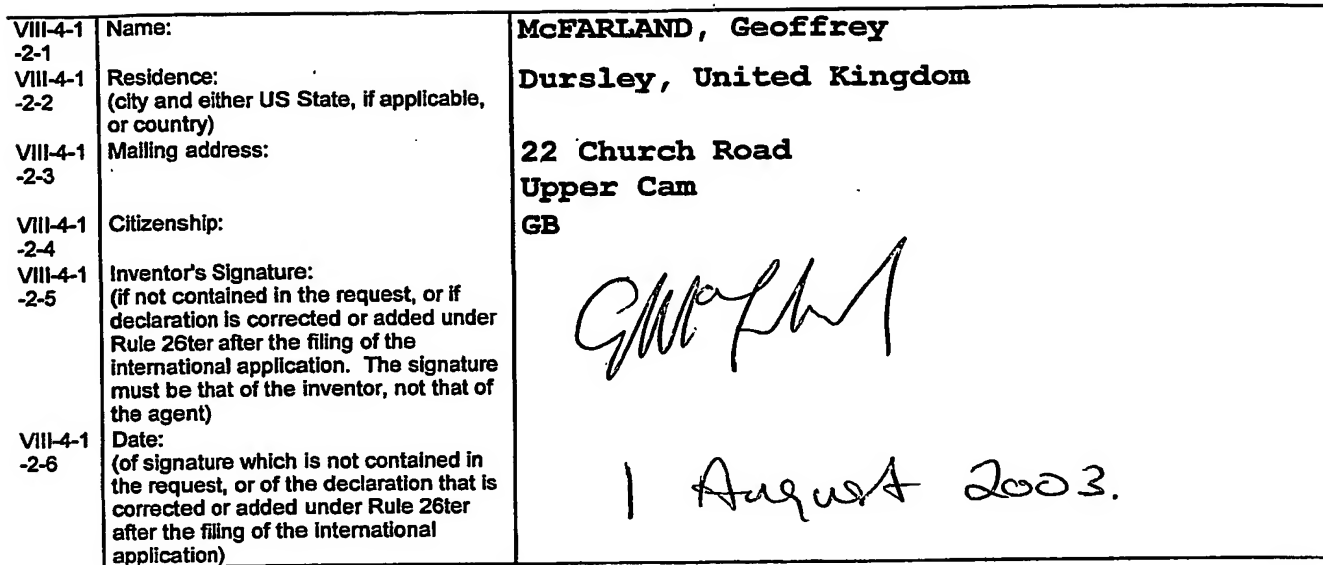 VIII-4-1 Name: McFARLAND, Geoffrey
-2-1
VIII-4-1 Residence: Dursley, United Kingdom
-2-2 (city and either US State, if applicable,
or country)
VIII-4-1 Mailing address: 22 Church Road
-2-3 Upper Cam
VIII-4-1 Citizenship: GB
-2-4
VIII-4-1 Inventor's Signature:
-2-5 (if not contained in the request, or if
declaration is corrected or added under
Rule 26ter after the filing of the
international application. The signature
must be that of the inventor, not that of
the agent)
VIII-4-1 Date:
-2-6 (of signature which is not contained in
the request, or of the declaration that is
corrected or added under Rule 26ter
after the filing of the international
application)
1 August 2003.